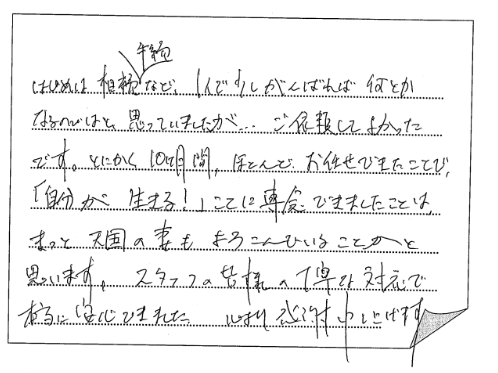 手続
はじめは相続など、1人で少しがんばれば何とか
なるのではと、思っていましたが… ご依頼してよかった
です。とにかく10ヶ月間、ほとんどお任せできたことで、
「自分が生きる!」ことに専念できましたことは、
きっと天国の妻もよろこんでいることかと
思います。スタッフの皆様の丁寧な対応で
本当に安心できました。心より感謝申し上げます